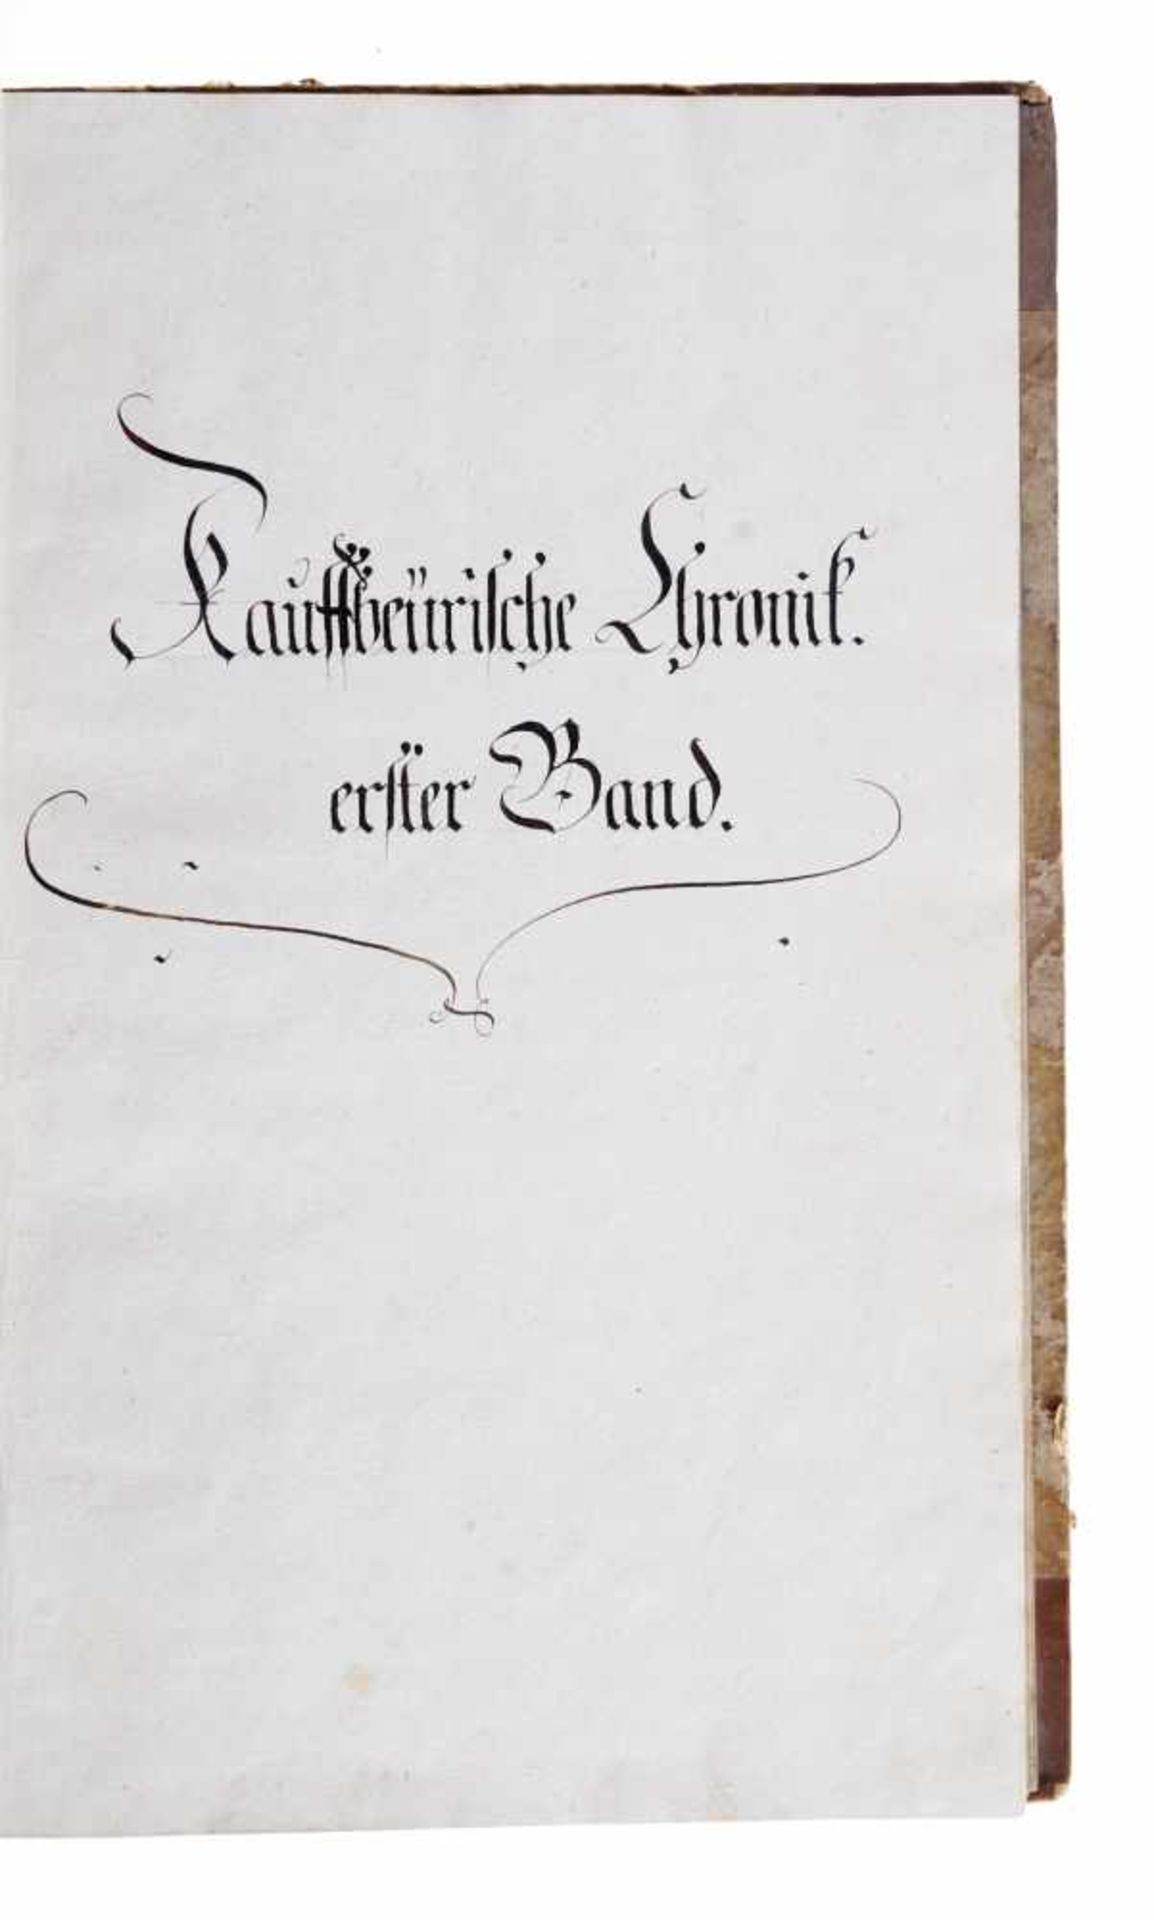 Kauffbeürische Chronik.
erster Band.